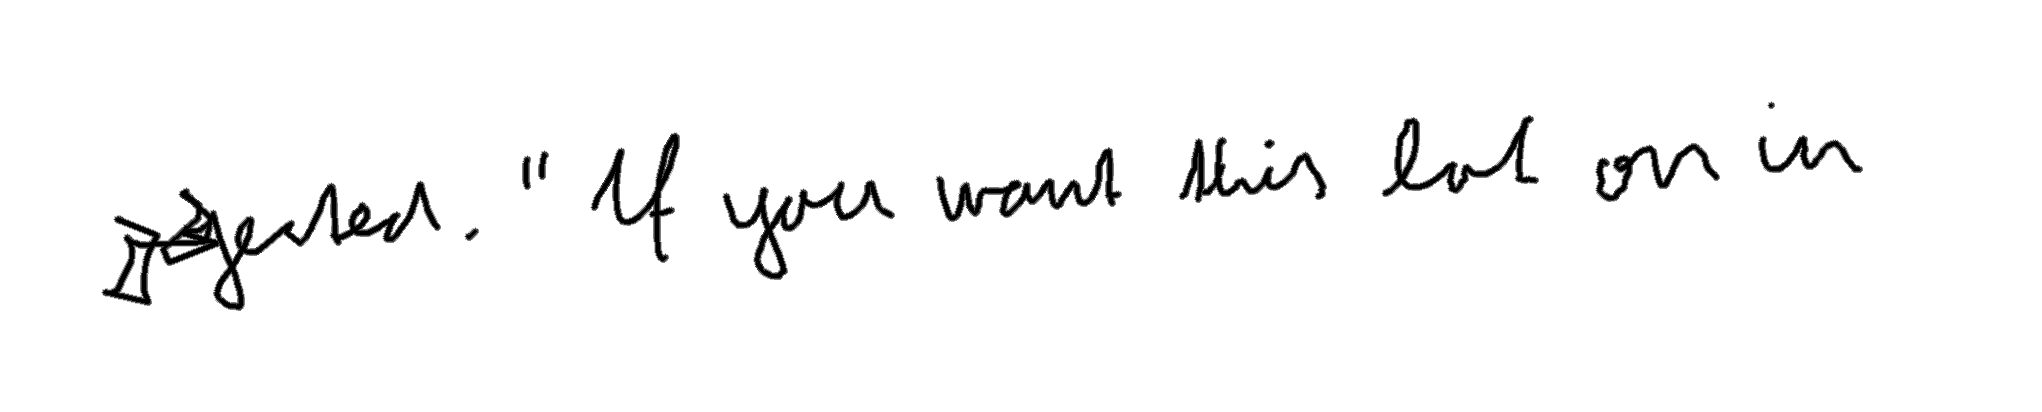 gested. "If you want this lot on in